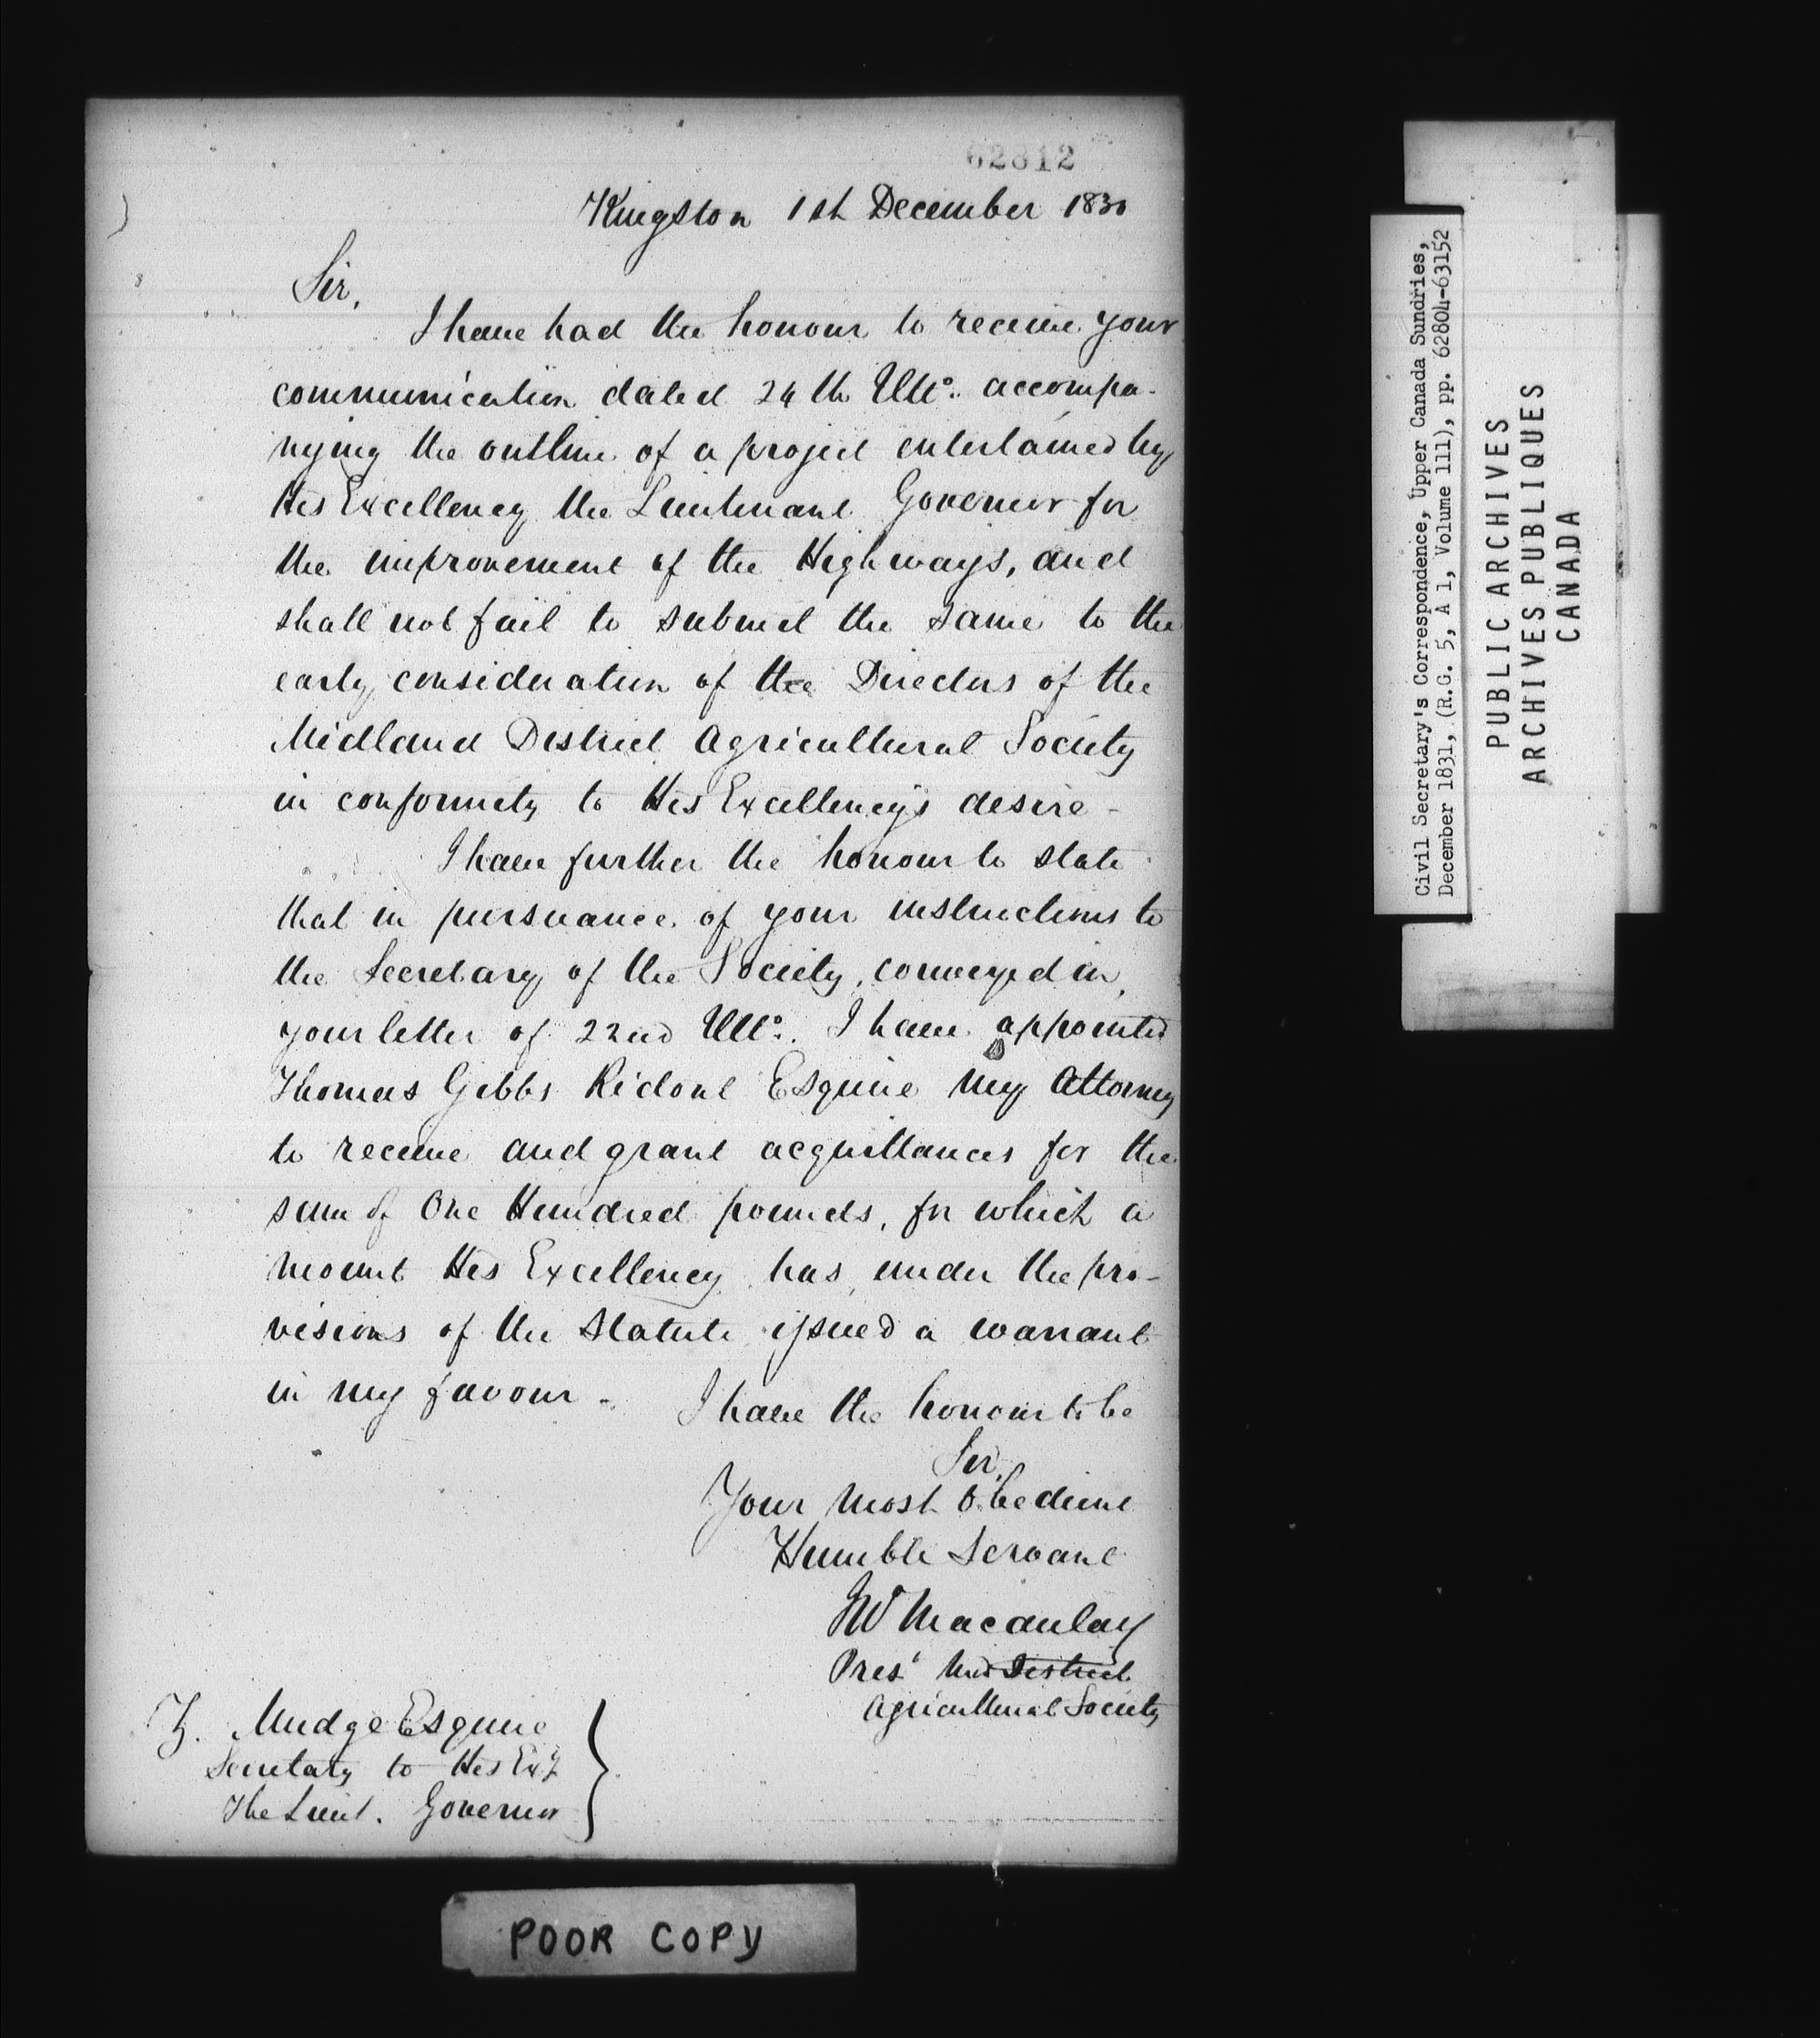 62812
Kingston 1st December 1830
Sir,
I have had the honour to receive your
communication dated 24th Ulto. accompa-
nying the outline of a project entertained by
His Excellency the Lieutenant Governor for
the improvement of the Highways, and
shall not fail to submit the same to the
early consideration of the Directors of the
Midland District Agricultural Society
in conformity to His Excellency's desire -
I have further the honour to state
that in pursuance of your instructions to
the Secretary of the Society, conveyed in,
your letter of 22nd Ulto. I have appointed
Thomas Gibbs Ridout Esquire my Attorney
to receive and grant acquittances for the
sum of One Hundred pounds, for which a
mount His Excellency has, under the pro-
visions of the Statute issued a warrant
in my favour -
I have the honour to be
Sir,
Your most Obedient
Humble Servant
Macaulay
Prest Mid District
Agricultural Society
Z. Mudge Esquire
Secretary to His Exy
The Lieut. Governor
POOR COPY
Civil Secretary's Correspondence, Upper Canada Sundries,
December 1831, (R.G. 5, A 1, Volume 111), pp. 62804-63152
PUBLIC ARCHIVES
ARCHIVES PUBLIQUES
CANADA